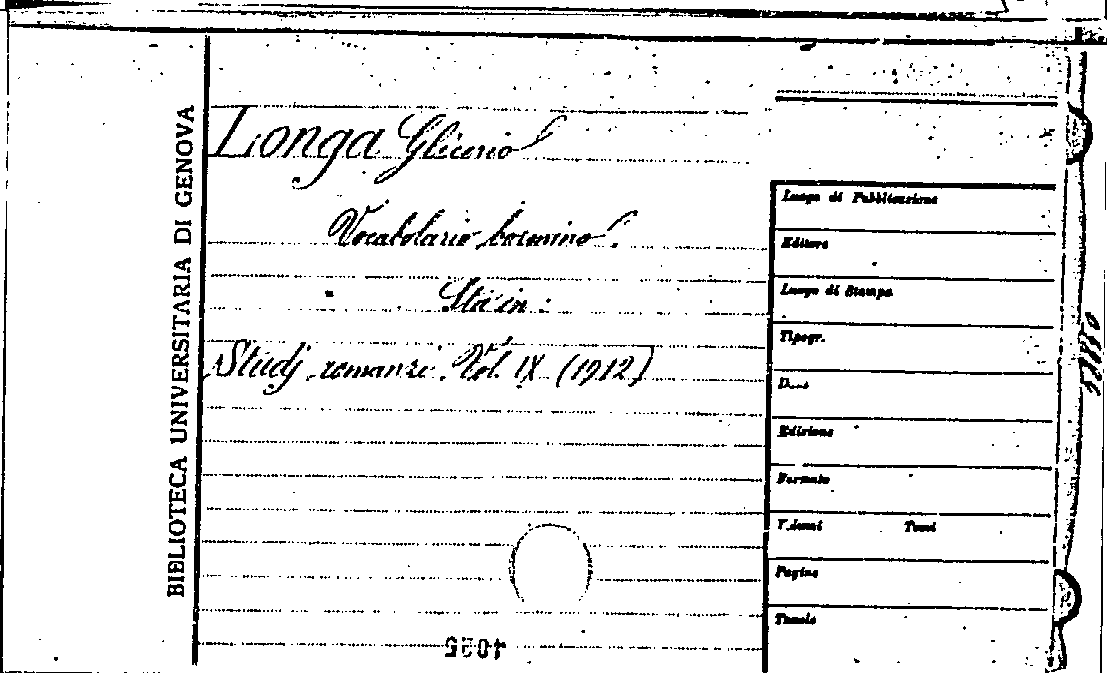 BIBLIOTECA UNIVERSITARIA DI GENOVA
Longa Glicerio
Vocabolario bormino.
Sta in:
Studj romanzi. Vol. IX (1912)
Luogo di Pubblicazione
Editore
Luogo di Stampa
Tipogr.
Data
Edizione
Formato
Volumi Tomi
Pagine
Tavole